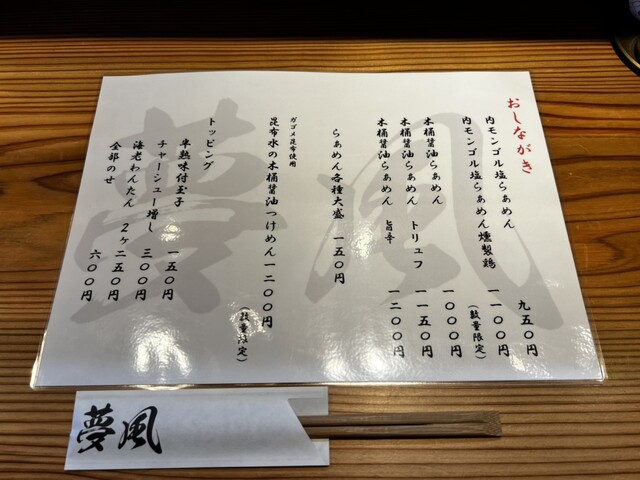 おしながき
内モンゴル塩らぁめん 九五〇円
内モンゴル塩らぁめん燻製鶏 一一〇〇円
(数量限定)
木桶醤油らぁめん 一〇〇〇円
木桶醤油らぁめん トリュフ 一一五〇円
木桶醤油らぁめん 旨辛 一二〇〇円
らぁめん各種大盛 一五〇円
ガゴメ昆布使用
昆布水の木桶醤油つけめん 一二〇〇円
(数量限定)
トッピング
半熟味付玉子 一五〇円
チャーシュー増し 三〇〇円
海老わんたん 2ヶ 二五〇円
全部のせ 六〇〇円
夢風
夢風